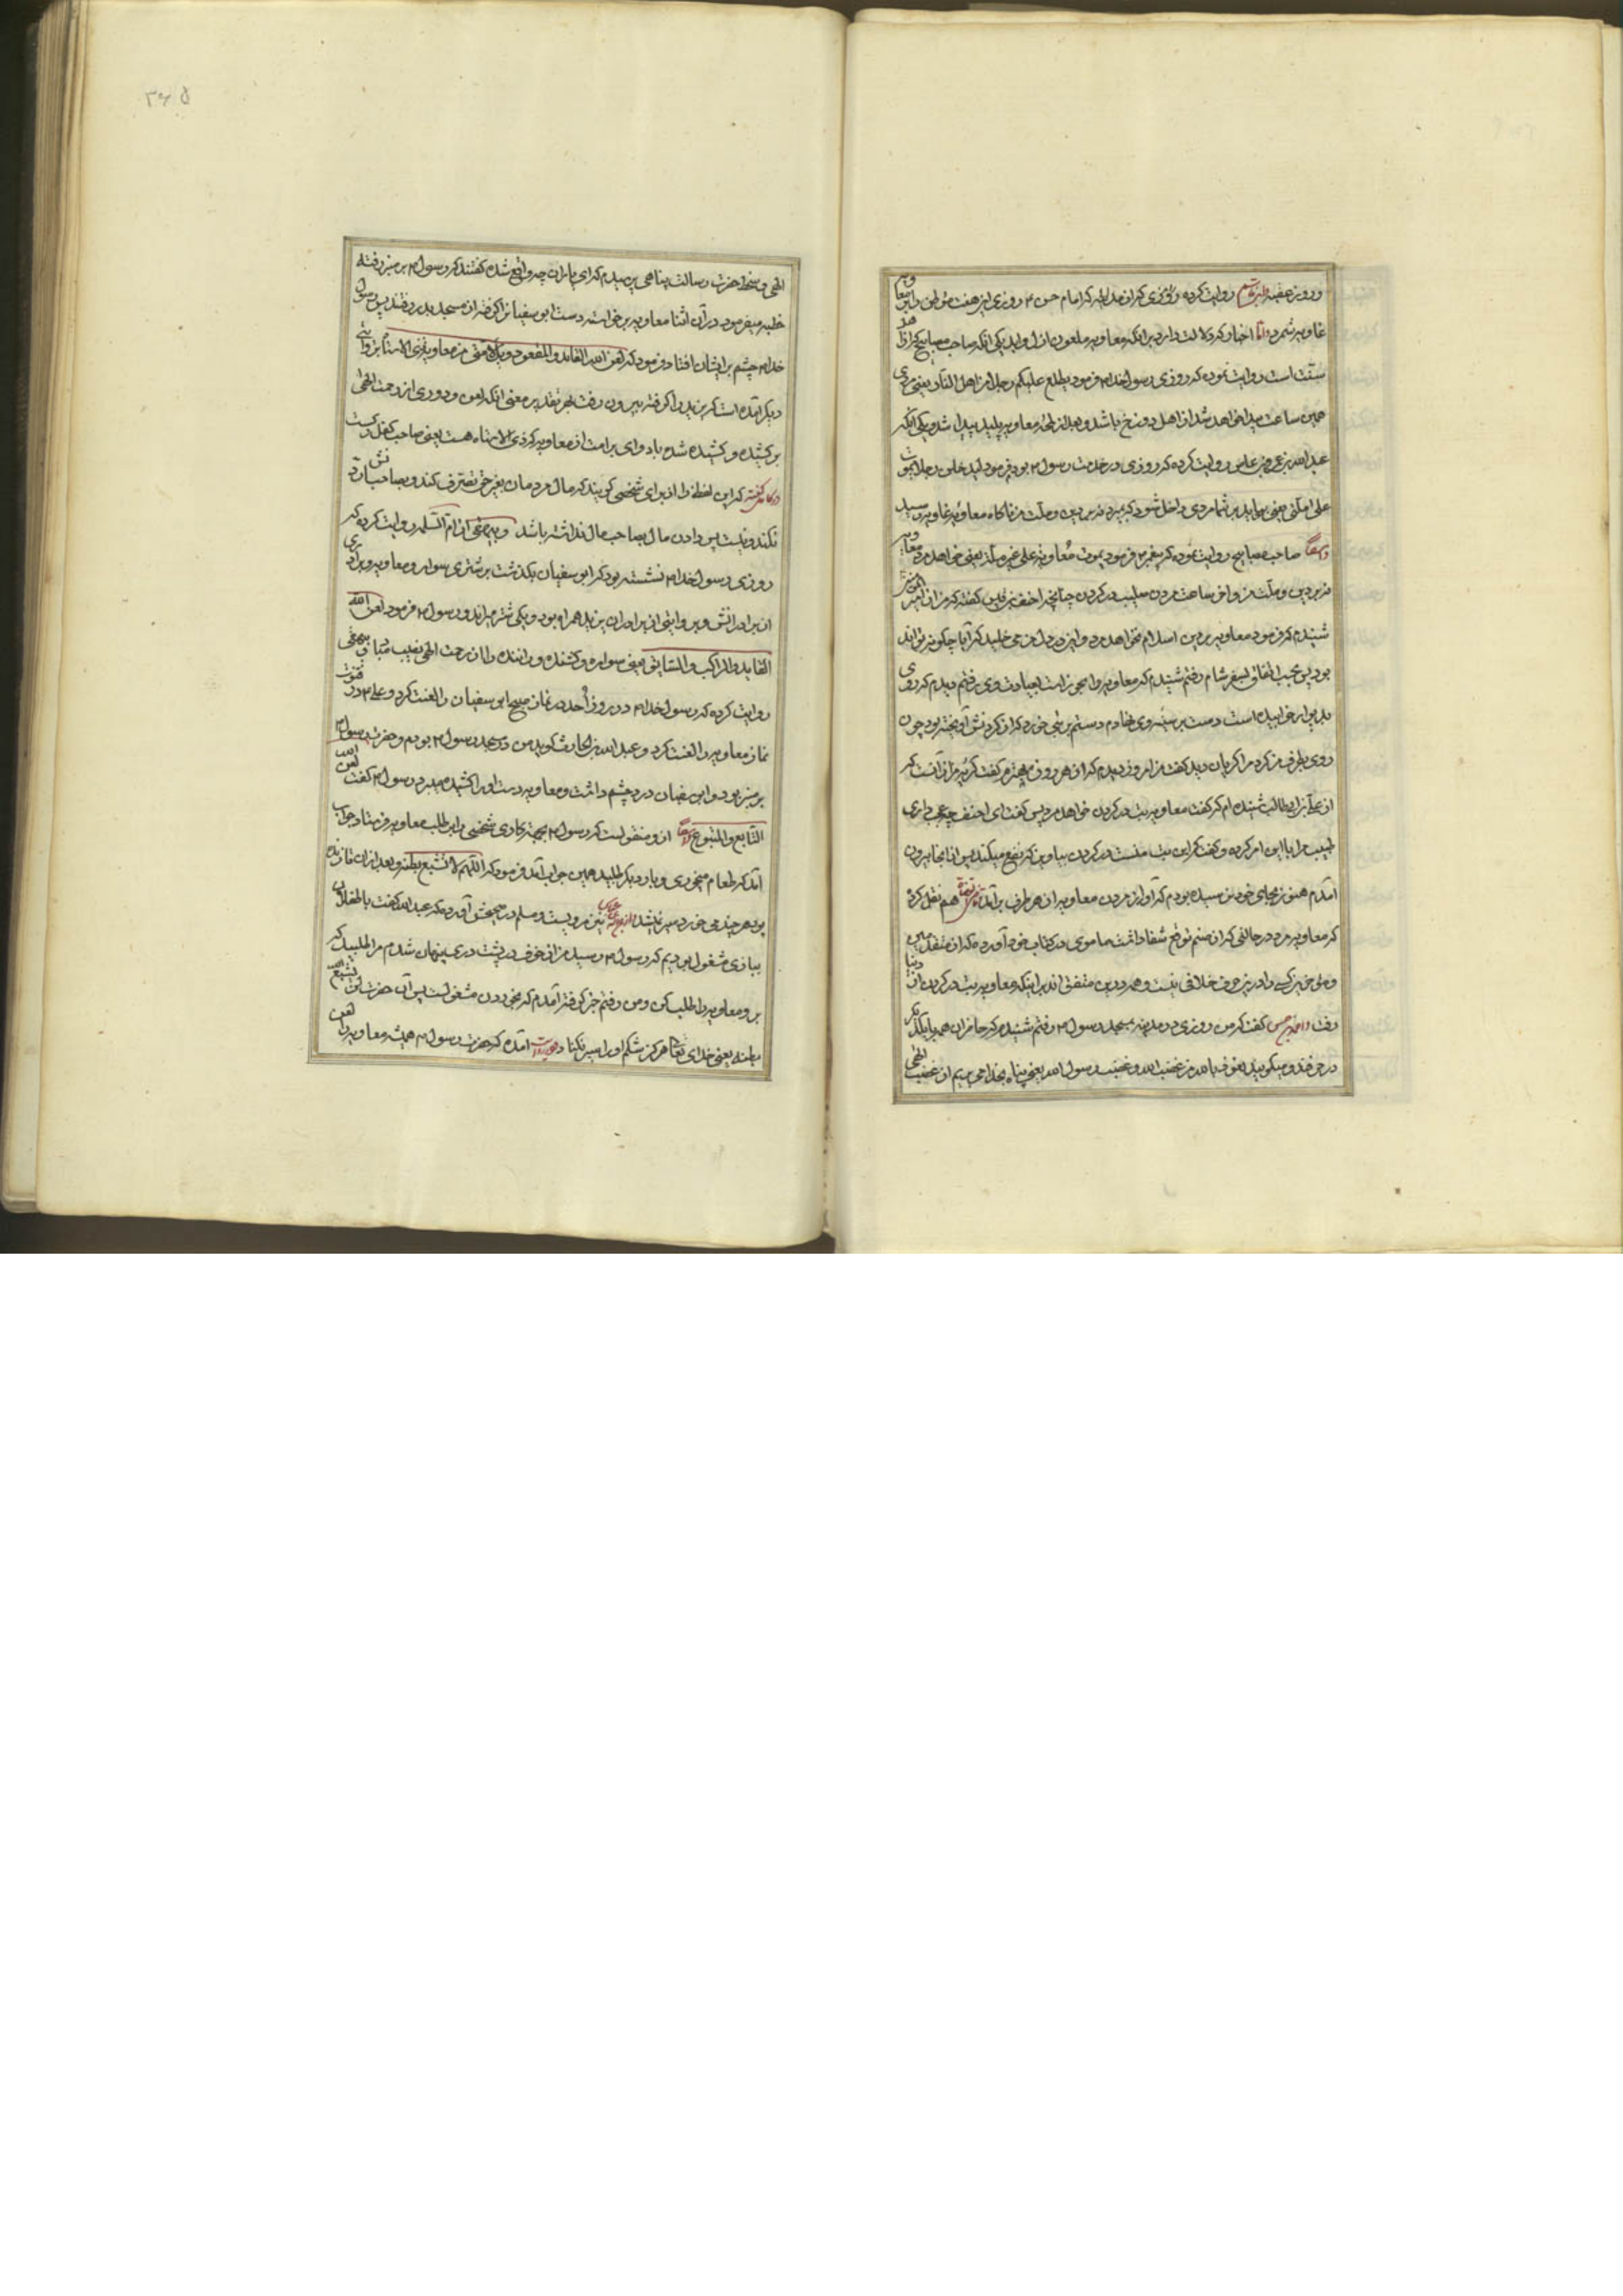 و روز هفتم روایت کرده که امام حسن ۴ روزی این هفت موطن را بر معاویه
غاویه شمرد و اما اخبار که دلالت دارد بر آنکه معاویه ملعون یکی آنکه صاحب مصابیح که از
سنت است روایت نموده که روزی رسول خدا فرمود یطلع علیکم رجل من اهل النار یعنی مردی
همین ساعت پیدا خواهد شد از اهل دوزخ باشد و بعد از لحظه معاویه پلید پیدا شد و یکی آنکه
عبدالله بن عمرو بن عاص روایت کرده که روزی در خدمت رسول ۴ بودم فرمود لیدخلن رجل یموت
علی امتی یعنی بیاید بر شما مردی داخل شود که بمیرد نه بر دین و ملت من ناگاه معاویه غاویه رسید
صاحب مصابیح روایت نموده که پیغمبر فرمود یموت معاویة علی غیر ملة یعنی خواهد مرد معاویه
نه بر دین و ملت من و آن ساعت مردن صلیب در گردن چنانچه احنف بن قیس گفته که من از امیر المومنین
شنیدم که فرمود معاویه بر دین اسلام نخواهد مرد و این در دل من می خلید که آیا چگونه تواند
بود پس بحسب اتفاق بسفر شام رفتم شنیدم که معاویه رنجور است بعیادت وی رفتم دیدم که روی
بدیوار خوابیده است دست بر سینه وی نهادم دستم بر بتی خورد که از گردنش آویخته بود چون
روی بطرف من کرد مرا گریان دید گفت من امروز دیدم که از هر روز بهترم گفت گریه من از آنست که
از علی بن ابیطالب شنیده ام که گفت معاویه بت در گردن خواهد مرد پس گفت ای احنف چه عجب داری
طبیب مرا باین امر کرده و گفت که این بت منست در گردن بیاویز که نفع میکند پس از آنجا بیرون
آمدم هنوز بجای خود نرسیده بودم که آواز مردن معاویه از هر طرف برآمد هم نقل کرده
که معاویه مرد در حالتی که از صنم توقع شفا داشت
خلافی نیست و همه درین متفق اند بر اینکه معاویه بت در گردن از دنیا
رفت گفت که من روزی در مدینه بمسجد رسول ۴ رفتم شنیدم که حاضران همه با یکدیگر
در حرفند و میگویند نعوذ بالله من غضب الله و غضب رسول الله یعنی پناه بخدا می بریم از غضب الهی
۳۶۵
الهی و سخط حضرت رسالت پناهی پرسیدم که ای یاران چه واقع شده گفتند که رسول ۴ بر منبر رفته
خطبه میفرمود در آن اثنا معاویه برخاسته دست ابوسفیان را گرفته از مسجد بدر رفتند پس رسول
خدا ۴ چشم بر ایشان افتاد فرمود که لعن الله القائد و المقعود ویل لامتی من معاویة ذی الاستاه
دیگر آمده است که یزید را گرفته بیرون رفت بهر تقدیر معنی آنکه لعن و دوری از رحمت الهی
بر کشنده و کشیده شده باد و وای بر امت از معاویه که ذی الاستاه است یعنی صاحب کفل
که این لفظ را از برای شخصی گویند که مال مردمان بغیر حق تصرف کند و بصاحبش رد
نکند و نیت پس دادن مال بصاحب مال نداشته باشد و بیهقی از ام السلمه روایت کرده که
روزی رسول خدا ۴ نشسته بود که ابوسفیان بگذشت بر شتری سوار و معاویه و یکی
از برادرانش و بروایتی از برادران یزید همراه بود و یکی شتر میراند رسول ۴ فرمود لعن الله
القائد و الراکب و السائق یعنی سواره و کشنده و راننده را از رحمت الهی نصیب مباد و بیهقی
روایت کرده که رسول خدا ۴ در روز احد در نماز صبح ابوسفیان را لعنت کرد و علی ۴ در قنوت
نماز معاویه را لعنت کرد و عبدالله بن الحارث گوید من در مسجد رسول ۴ بودم و حضرت رسول ۴
بر منبر بود و ابوسفیان درد چشم داشت و معاویه دست او را کشیده میبرد رسول ۴ گفت لعن الله
التابع و المتبوع از و منقولست که رسول ۴ بجهة کاری شخصی را بطلب معاویه فرستاد جواب
آمد که طعام میخورد و بار دیگر طلبید همین جواب آمد فرمود که اللهم لا تشبع بطنه و بعد از آن
بود هر چند می خورد سیر نمیشد نیز مرویست و مسلم در صحیحش آورده که عبدالله گفت با طفلان
ببازی مشغول بودیم که رسول ۴ رسید من از خوف در پشت دری پنهان شدم مرا طلبید که
برو معاویه را طلب کن و من رفتم خبر گرفته آمدم که بخوردن مشغولست پس آن حضرت گفت لا اشبع الله
بطنه یعنی خدای تعالی هرگز شکم او را سیر نکناد آمده که حضرت رسول ۴ همیشه معاویه را لعن